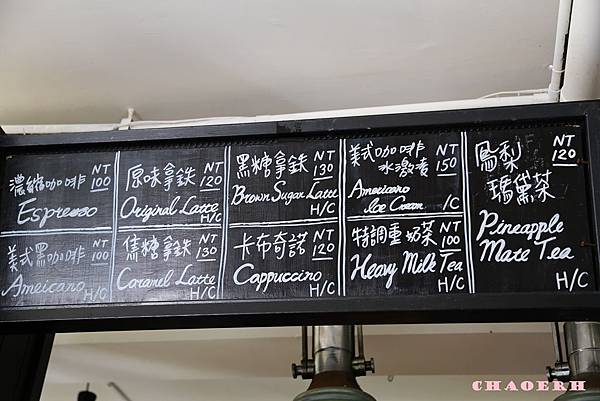 濃縮咖啡 NT 100
Espresso
美式黑咖啡 NT 100
Ameicano H/C
原味拿鉄 NT 120
Original Latte
H/C
焦糖拿鉄 NT 130
Caramel Latte
H/C
黑糖拿鉄 NT 130
Brown Sugar Latte
H/C
卡布奇諾 NT 120
Cappuccino
H/C
美式咖啡 NT 150
水激凌
Americano
Ice Cream /C
特調重奶茶 NT 100
Heavy Milk Tea
H/C
鳳梨 NT 120
瑪黛茶
Pineapple
Mate Tea
H/C
CHAOERH